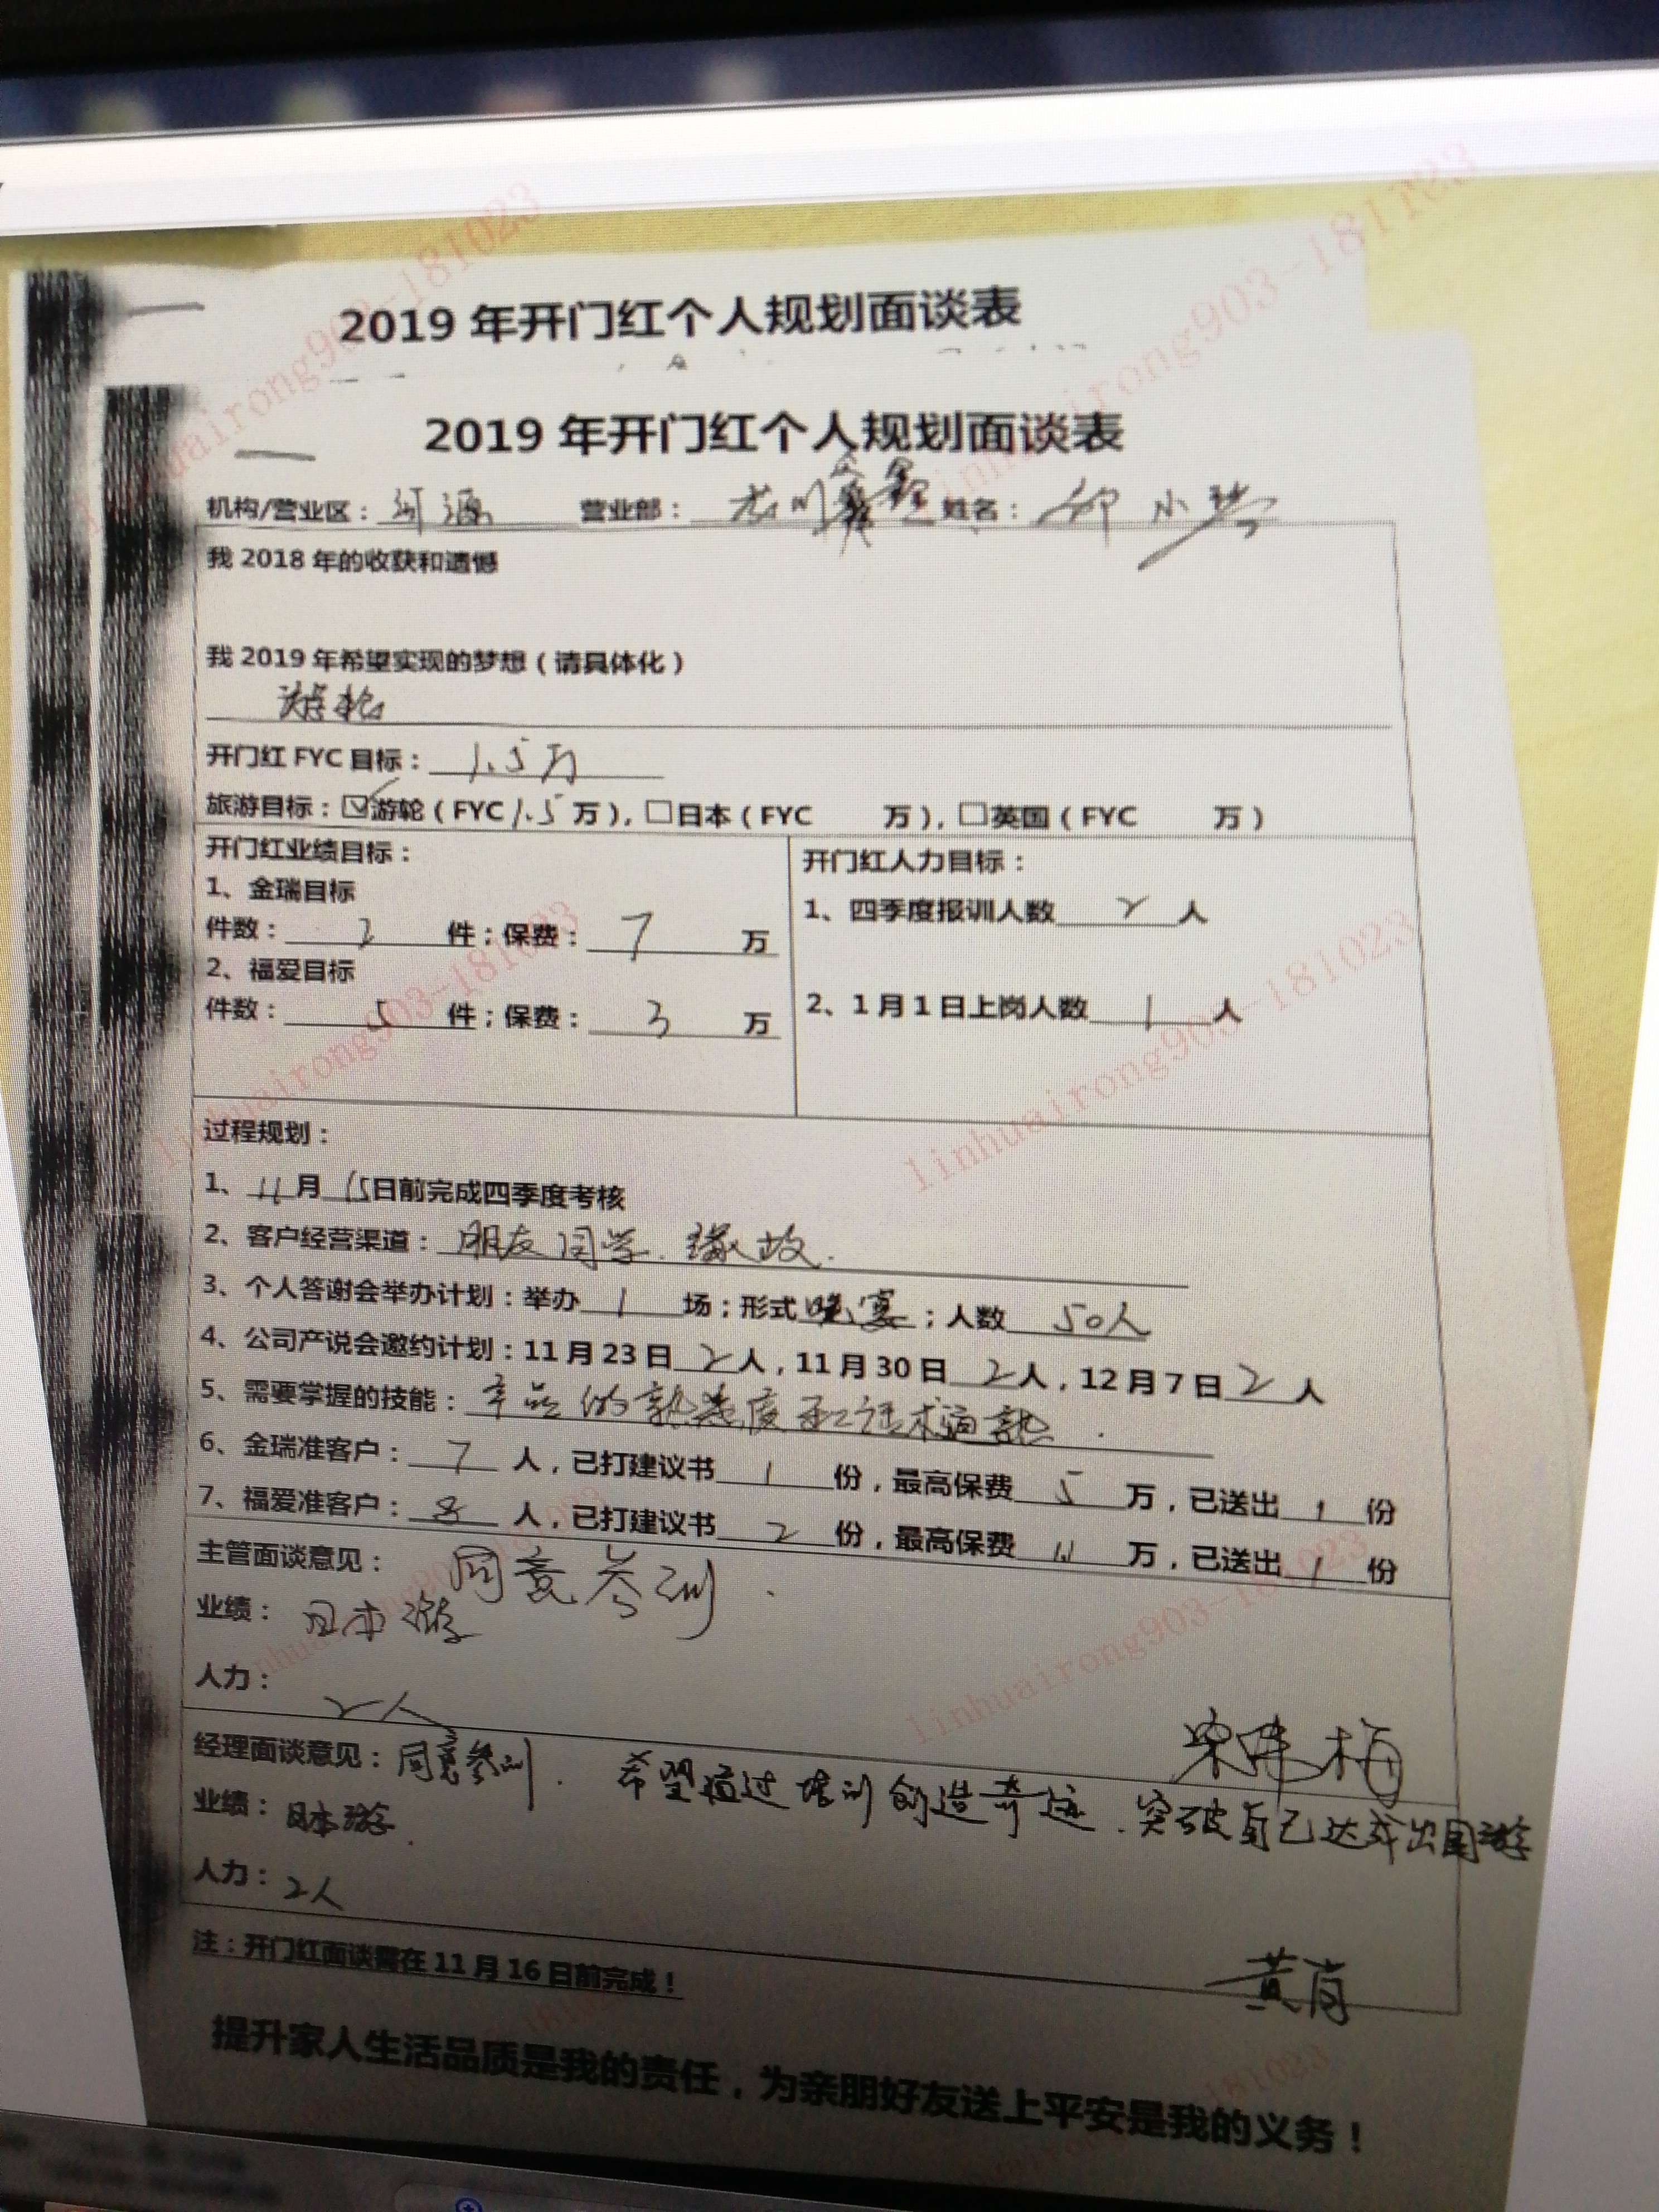 2019 年开门红个人规划面谈表
2019 年开门红个人规划面谈表
机构/营业区：河源 营业部：龙川 姓名：邱小
我 2018 年的收获和遗憾
我 2019 年希望实现的梦想（请具体化）
游轮
开门红 FYC 目标：1.5万
旅游目标：☑游轮（FYC 1.5 万），□日本（FYC 万），□英国（FYC 万）
开门红业绩目标：
1、金瑞目标
件数：2 件；保费：7 万
2、福爱目标
件数：5 件；保费：3 万
开门红人力目标：
1、四季度报训人数 2 人
2、1 月 1 日上岗人数 1 人
过程规划：
1、11 月 15 日前完成四季度考核
2、客户经营渠道：朋友 同学 缘故.
3、个人答谢会举办计划：举办 1 场；形式 晚宴；人数 50人
4、公司产说会邀约计划：11 月 23 日 2 人，11 月 30 日 2 人，12 月 7 日 2 人
5、需要掌握的技能：产品的熟悉度和话术通熟.
6、金瑞准客户：7 人，已打建议书 1 份，最高保费 5 万，已送出 1 份
7、福爱准客户：8 人，已打建议书 2 份，最高保费 万，已送出 1 份
主管面谈意见：同意参训.
业绩：日本游
人力：2人
梅
经理面谈意见：同意参训. 希望通过培训创造奇迹.突破自己达成出国游
业绩：日本游.
人力：2人
黄
注：开门红面谈需在 11 月 16 日前完成！
提升家人生活品质是我的责任，为亲朋好友送上平安是我的义务！
linhuairong903-181023